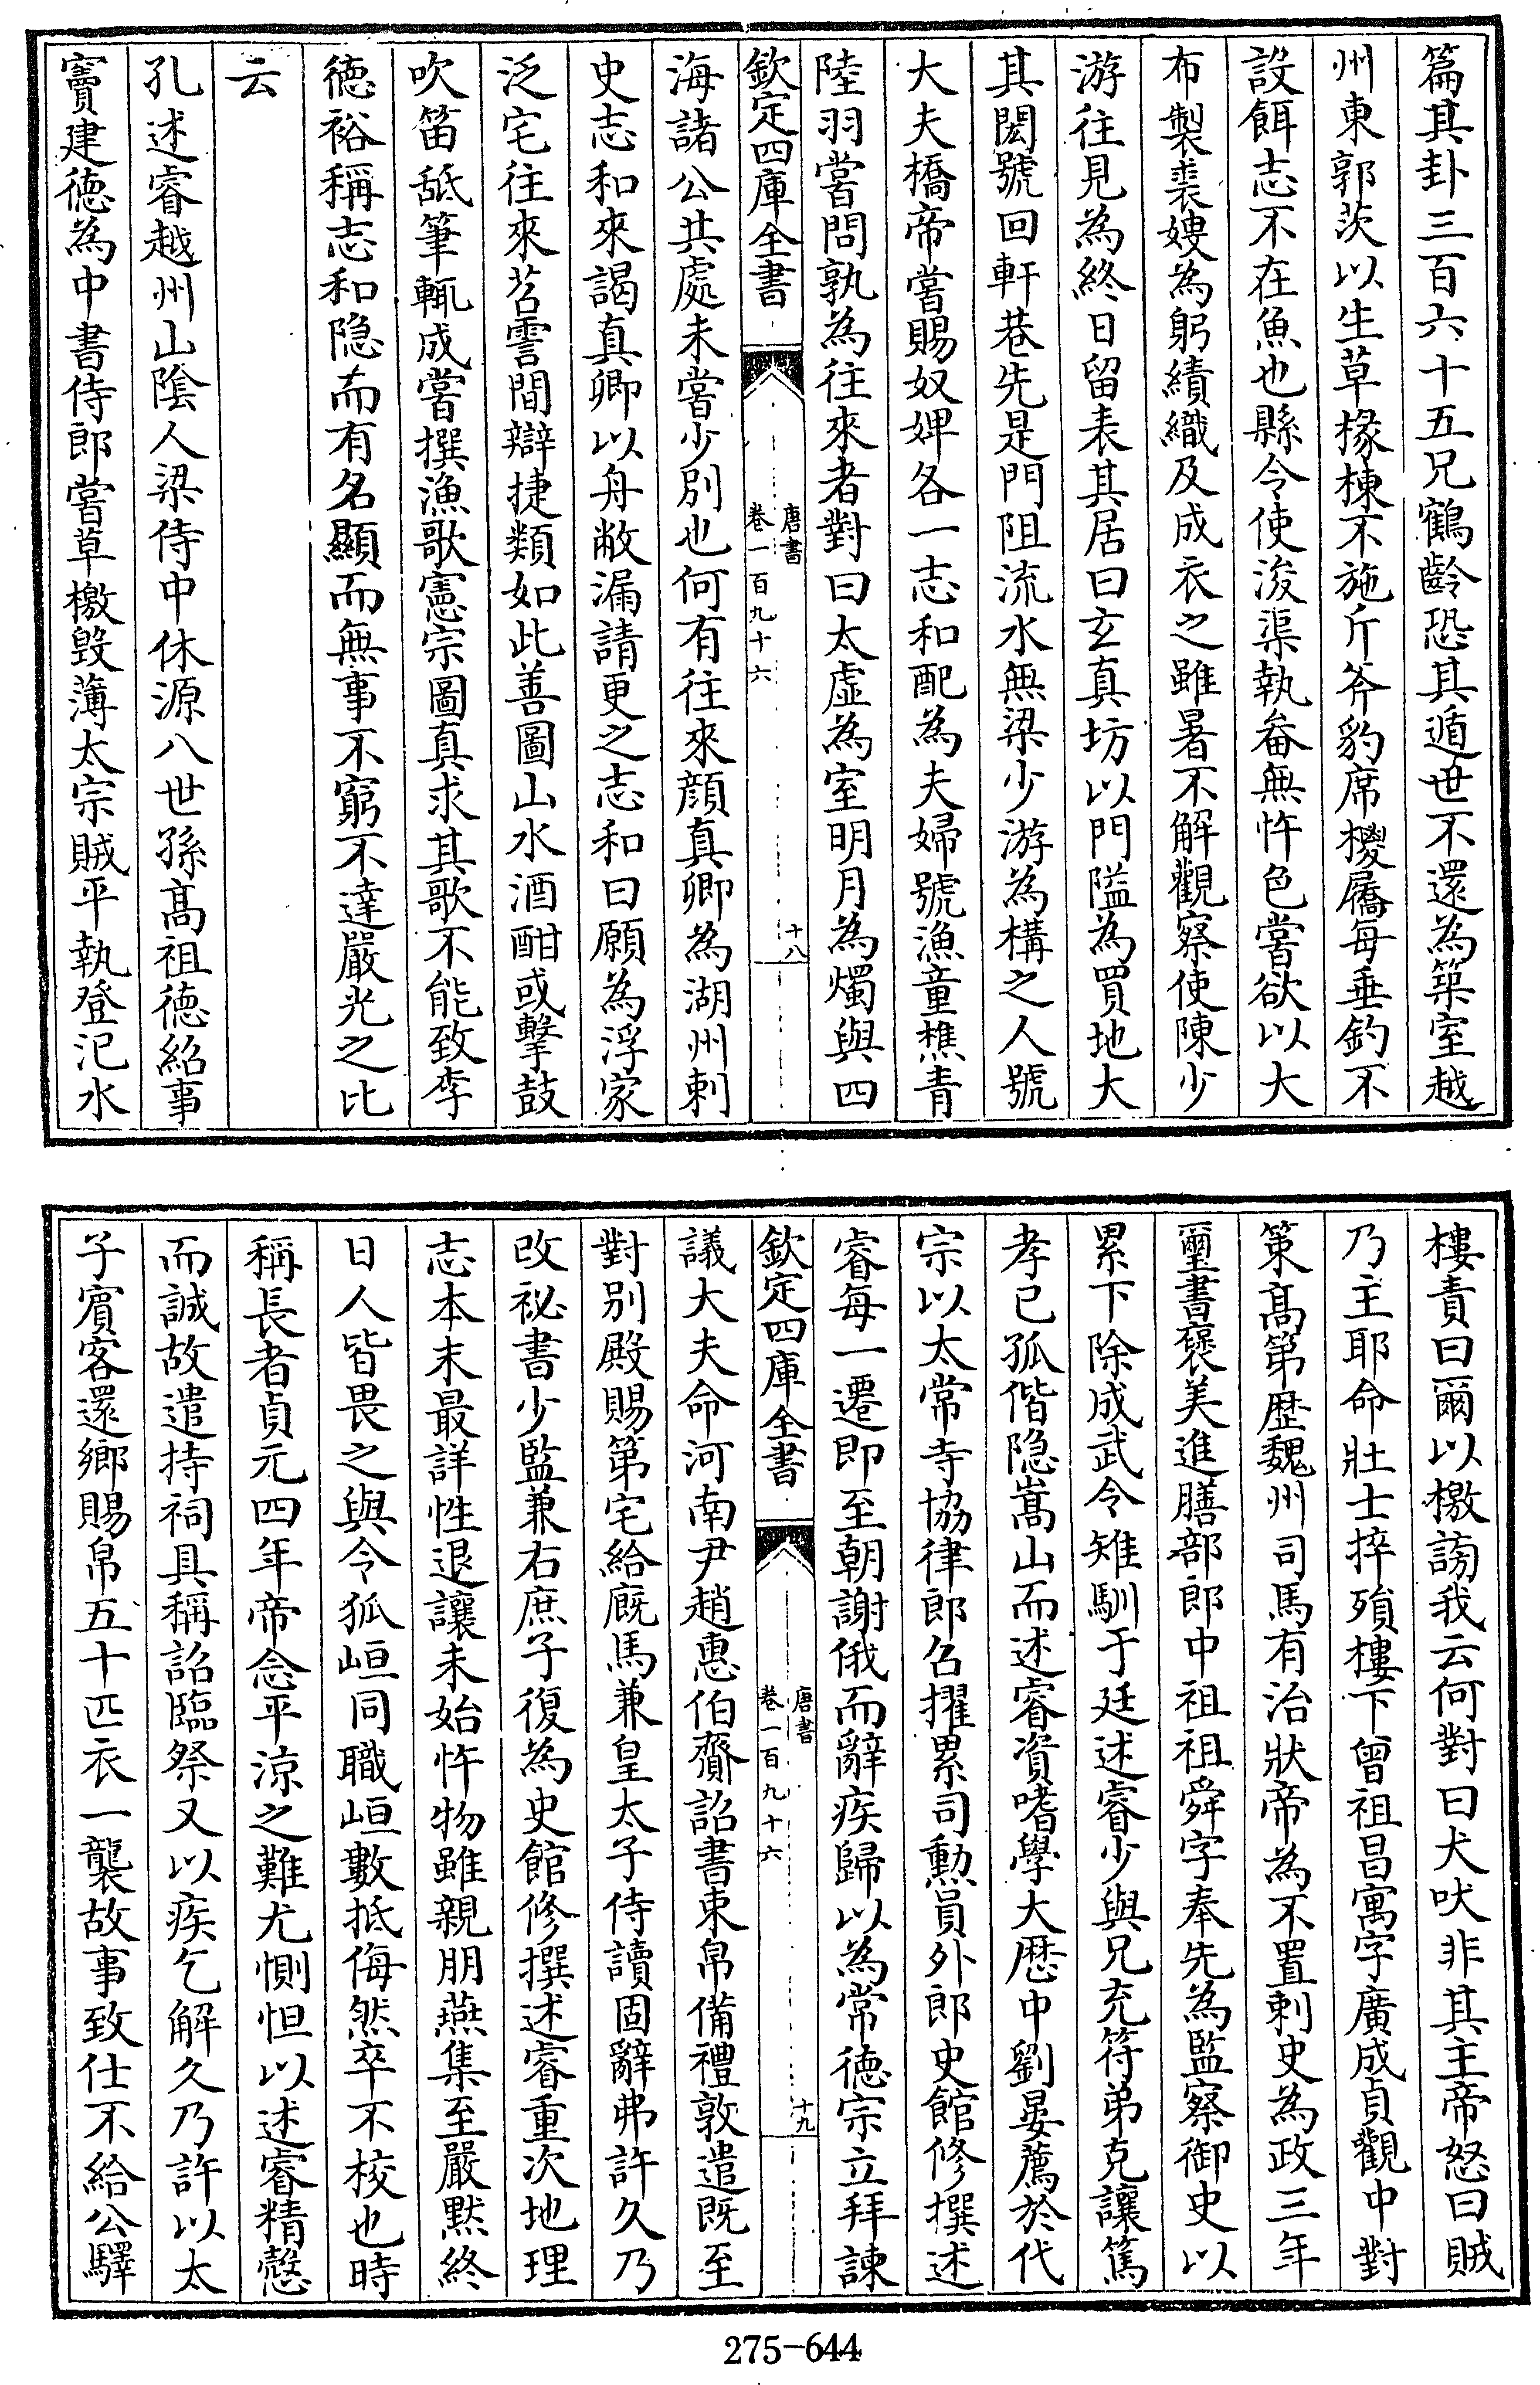 篇其卦三百六十五兄鶴齡恐其遁世不還為築室越
州東郭茨以生草椽棟不施斤斧豹席㯶屩每垂釣不
設餌志不在魚也縣令使浚渠執畚無忤色嘗欲以大
布製裘嫂為躬績織及成衣之雖暑不解觀察使陳少
游往見為終日留表其居曰玄真坊以門隘為買地大
其閎號回軒巷先是門阻流水無梁少游為構之人號
大夫橋帝嘗賜奴婢各一志和配為夫婦號漁童樵青
陸羽嘗問孰為往來者對曰太虛為室明月為燭與四
欽定四庫全書
唐書
卷一百九十六
十八
海諸公共處未嘗少別也何有往來顏真卿為湖州刺
史志和來謁真卿以舟敝漏請更之志和曰願為浮家
泛宅往來苕霅間辯捷類如此善圖山水酒酣或擊鼓
吹笛舐筆輒成嘗撰漁歌憲宗圖真求其歌不能致李
德裕稱志和隐而有名顯而無事不窮不達嚴光之比
云
孔述睿越州山陰人梁侍中休源八世孫高祖德紹事
竇建德為中書侍郎嘗草檄毀薄太宗賊平執登氾水
樓責曰爾以檄謗我云何對曰犬吠非其主帝怒曰賊
乃主耶命壯士捽殞樓下曾祖昌寓字廣成貞觀中對
策高第歷魏州司馬有治狀帝為不置刺史為政三年
璽書褒美進膳部郎中祖祖舜字奉先為監察御史以
累下除成武令雉馴于廷述睿少與兄充符弟克讓篤
孝已孤偕隐嵩山而述睿資嗜學大歷中劉晏薦於代
宗以太常寺協律郎召擢累司勳員外郎史館修撰述
睿每一遷即至朝謝俄而辭疾歸以為常德宗立拜諫
欽定四庫全書
唐書
卷一百九十六
十九
議大夫命河南尹趙惠伯齎詔書束帛備禮敦遣既至
對別殿賜第宅給廐馬兼皇太子侍讀固辭弗許久乃
改祕書少監兼右庶子復為史館修撰述睿重次地理
志本末最詳性退讓未始忤物雖親朋燕集至嚴默終
日人皆畏之與令狐峘同職峘數抵侮然卒不校也時
稱長者貞元四年帝念平涼之難尤惻怛以述睿精慤
而誠故遣持祠具稱詔臨祭又以疾乞解久乃許以太
子賓客還鄉賜帛五十匹衣一襲故事致仕不給公驛
275-644